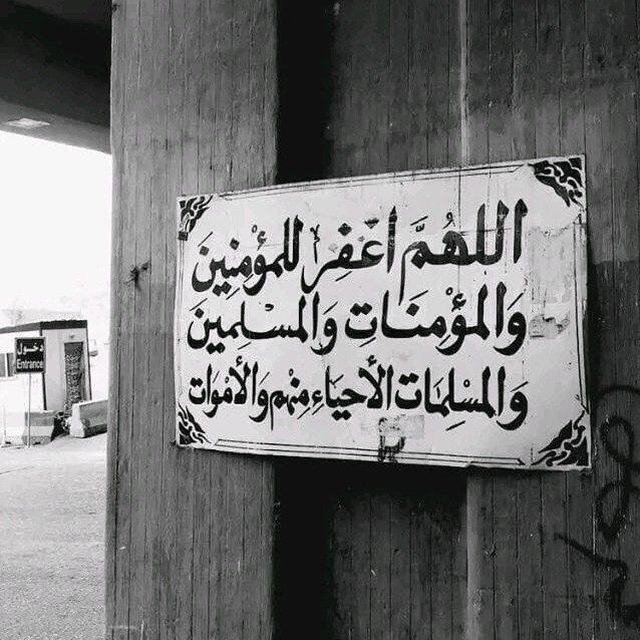 اللهُمَّ اغْفِر للمؤْمِنِين
وَالمؤْمِنَاتِ وَالمسْلِمينَ
وَالمسْلِمَات الأحيَاءِ مِنْهم وَالأمْوَات
دخول
Entrance